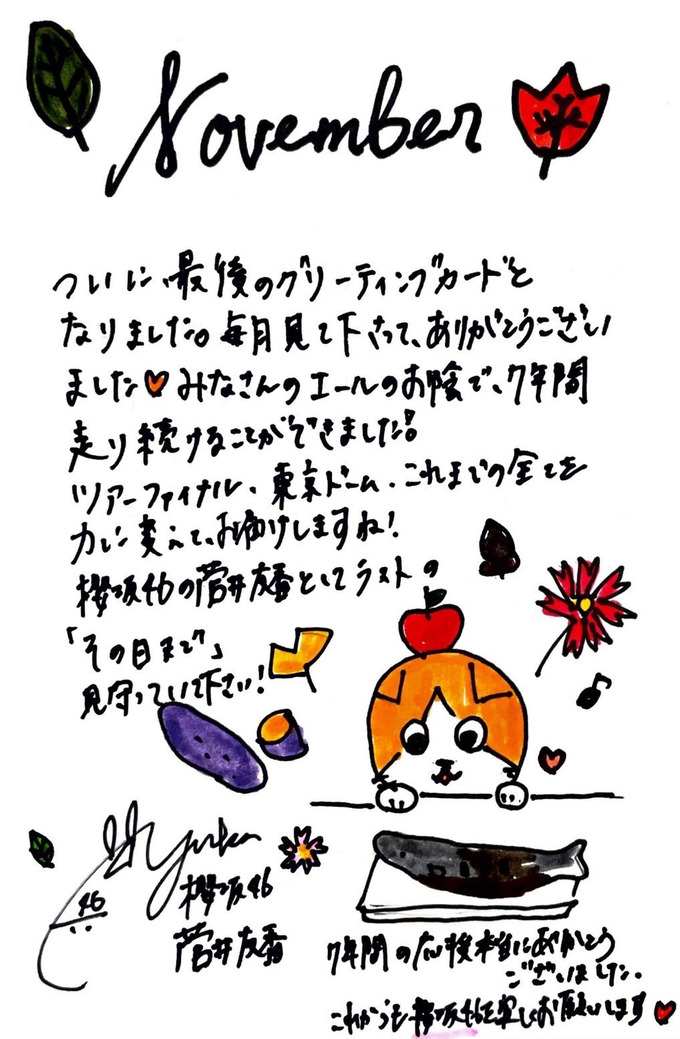 November
ついに、最後のグリーティングカードと
なりました。毎月見て下さって、ありがとうござい
ました みなさんのエールのお陰で、7年間
走り続けることができました!
ツアーファイナル、東京ドーム、これまでの全てを
力に変えて、お届けしますね!
櫻坂46の菅井友香としてラストの
「その日まで」
見守っていて下さい!
Yuka
46
櫻坂46
菅井友香
7年間の応援本当にありがとう
ございました。
これからも櫻坂46を宜しくお願いします